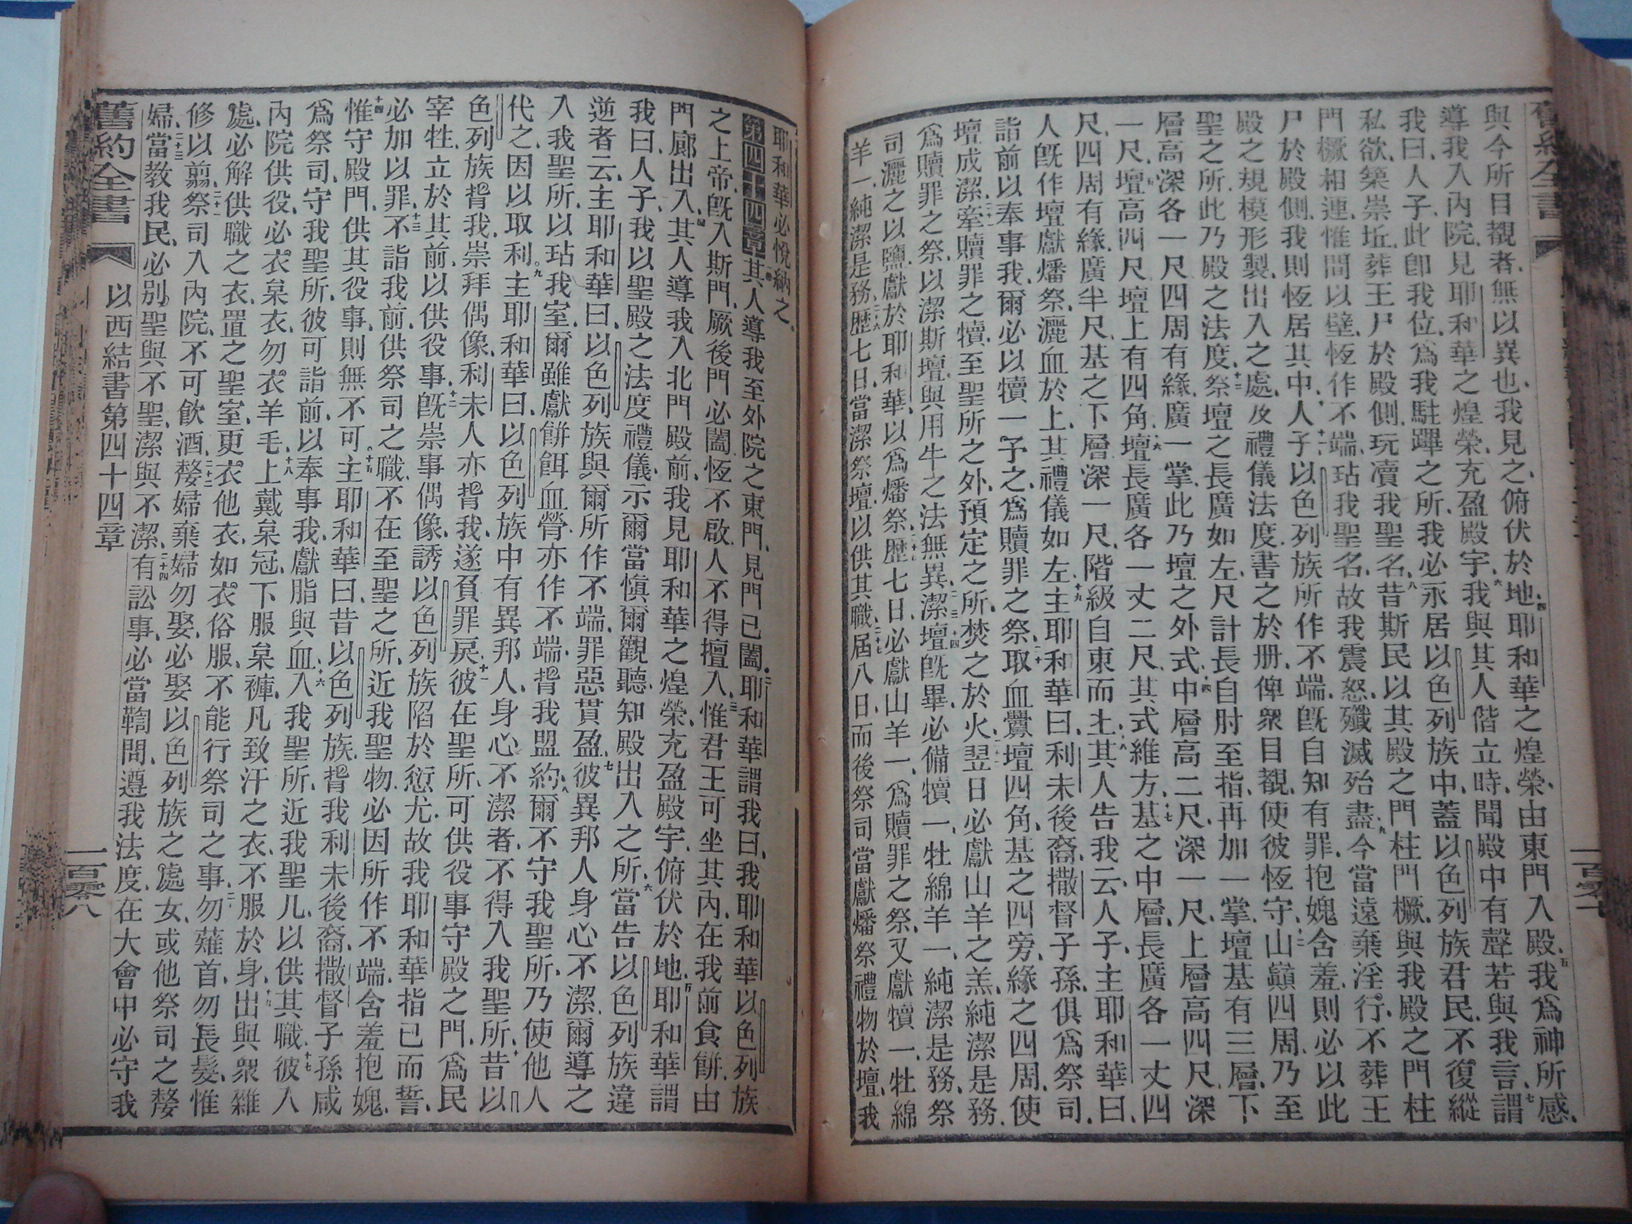 與今所目覩者無以異也我見之俯伏於地四耶和華之煌榮由東門入殿我五爲神所感
導我入內院見耶和華之煌榮充盈殿宇六我與其人偕立時聞殿中有聲若與我言七謂
我曰人子此卽我位爲我駐蹕之所我必永居以色列族中蓋以色列族君民不復縱
私欲築崇坵葬王尸於殿側玩凟我聖名八昔斯民以其殿之門柱門橛與我殿之門柱
門橛相連惟間以壁恆作不端玷我聖名故我震怒殲滅殆盡九今當遠棄淫行不葬王
尸於殿側我則恆居其中人子十以色列族所作不端旣自知有罪抱媿含羞則必以此
殿之規模形製出入之處及禮儀法度書之於册俾衆目覩使彼恆守山巔四周乃至
聖之所此乃殿之法度祭壇之長廣如左尺計長自肘至指再加一掌壇基有三層下
層高深各一尺四周有緣廣一掌此乃壇之外式中層高二尺深一尺上層高四尺深
一尺壇高四尺壇上有四角壇長廣各一丈二尺其式維方基之中層長廣各一丈四
尺四周有緣廣半尺基之下層深一尺階級自東而上其人告我云人子主耶和華曰
人旣作壇獻燔祭灑血於上其禮儀如左主耶和華曰利未後裔撒督子孫俱爲祭司
詣前以奉事我爾必以犢一予之爲贖罪之祭取血釁壇四角基之四旁緣之四周使
壇成潔牽贖罪之犢至聖所之外預定之所焚之於火翌日必獻山羊之羔純潔是務
爲贖罪之祭以潔斯壇與用牛之法無異潔壇旣畢必備犢一牡綿羊一純潔是務祭
司灑之以鹽獻於耶和華以爲燔祭歷七日必獻山羊一爲贖罪之祭又獻犢一牡綿
羊一純潔是務歷七日當潔祭壇以供其職屆八日而後祭司當獻燔祭禮物於壇我
耶和華必悅納之
第四十四章其人導我至外院之東門見門已闔二耶和華謂我曰我耶和華以色列族
之上帝旣入斯門厥後門必闔恆不啟人不得擅入三惟君王可坐其內在我前食餅由
門廊出入四其人導我入北門殿前我見耶和華之煌榮充盈殿宇俯伏於地五耶和華謂
我曰人子我以聖殿之法度禮儀示爾當愼爾觀聽知殿出入之所六當告以色列族違
逆者云主耶和華曰以色列族與爾所作不端罪惡貫盈七彼異邦人身心不潔爾導之
入我聖所以玷我室爾雖獻餅餌血膋亦作不端背我盟約八爾不守我聖所乃使他人
代之因以取利九主耶和華曰以色列族中有異邦人身心不潔者不得入我聖所十昔以
色列族背我崇拜偶像利未人亦背我遂負罪戾十一彼在聖所可供役事守殿之門爲民
宰牲立於其前以供役事十二旣崇事偶像誘以色列族陷於愆尤故我耶和華指己而誓
必加以罪十三不詣我前供祭司之職不在至聖之所近我聖物必因所作不端含羞抱媿
十四惟守殿門供其役事則無不可十五主耶和華曰昔以色列族背我利未後裔撒督子孫咸
爲祭司守我聖所彼可詣前以奉事我獻脂與血十六入我聖所近我聖几以供其職十七彼入
內院供役必衣枲衣勿衣羊毛十八上戴枲冠下服枲褲凡致汗之衣不服於身十九出與衆雜
處必解供職之衣置之聖室更衣他衣如衣俗服不能行祭司之事二十勿薙首勿長髮惟
修以翦二十一祭司入內院不可飲酒二十二嫠婦棄婦勿娶必娶以色列族之處女或他祭司之嫠
婦二十三當敎我民必別聖與不聖潔與不潔二十四有訟事必當鞫問遵我法度在大會中必守我
舊約全書 以西結書第四十四章 一百零八